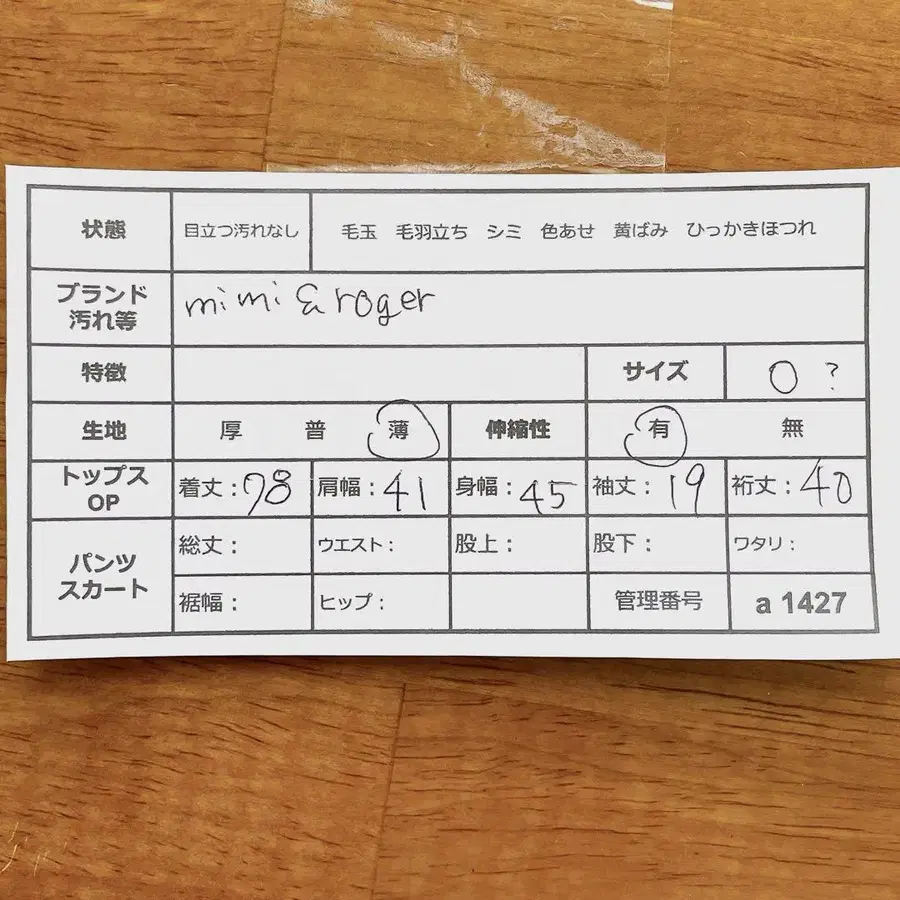 状態 目立つ汚れなし 毛玉 毛羽立ち シミ 色あせ 黄ばみ ひっかきほつれ
ブランド 汚れ等 mimi & roger
特徴 サイズ 0 ?
生地 厚 普 薄 伸縮性 有 無
トップス OP 着丈：98 肩幅：41 身幅：45 袖丈：19 裄丈：40
パンツ スカート 総丈： ウエスト： 股上： 股下： ワタリ：
裾幅： ヒップ： 管理番号 a 1427